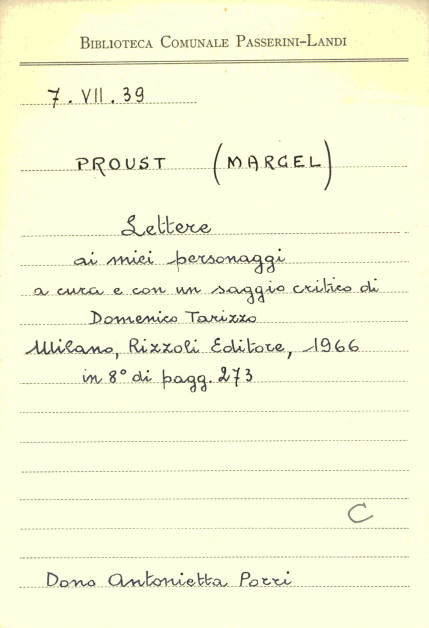 BIBLIOTECA COMUNALE PASSERINI-LANDI
7. VII. 39
PROUST (MARCEL)
Lettere
ai miei personaggi
a cura e con un saggio critico di
Domenico Tarizzo
Milano, Rizzoli Editore, 1966
in 8° di pagg. 273
C
Dono Antonietta Porri